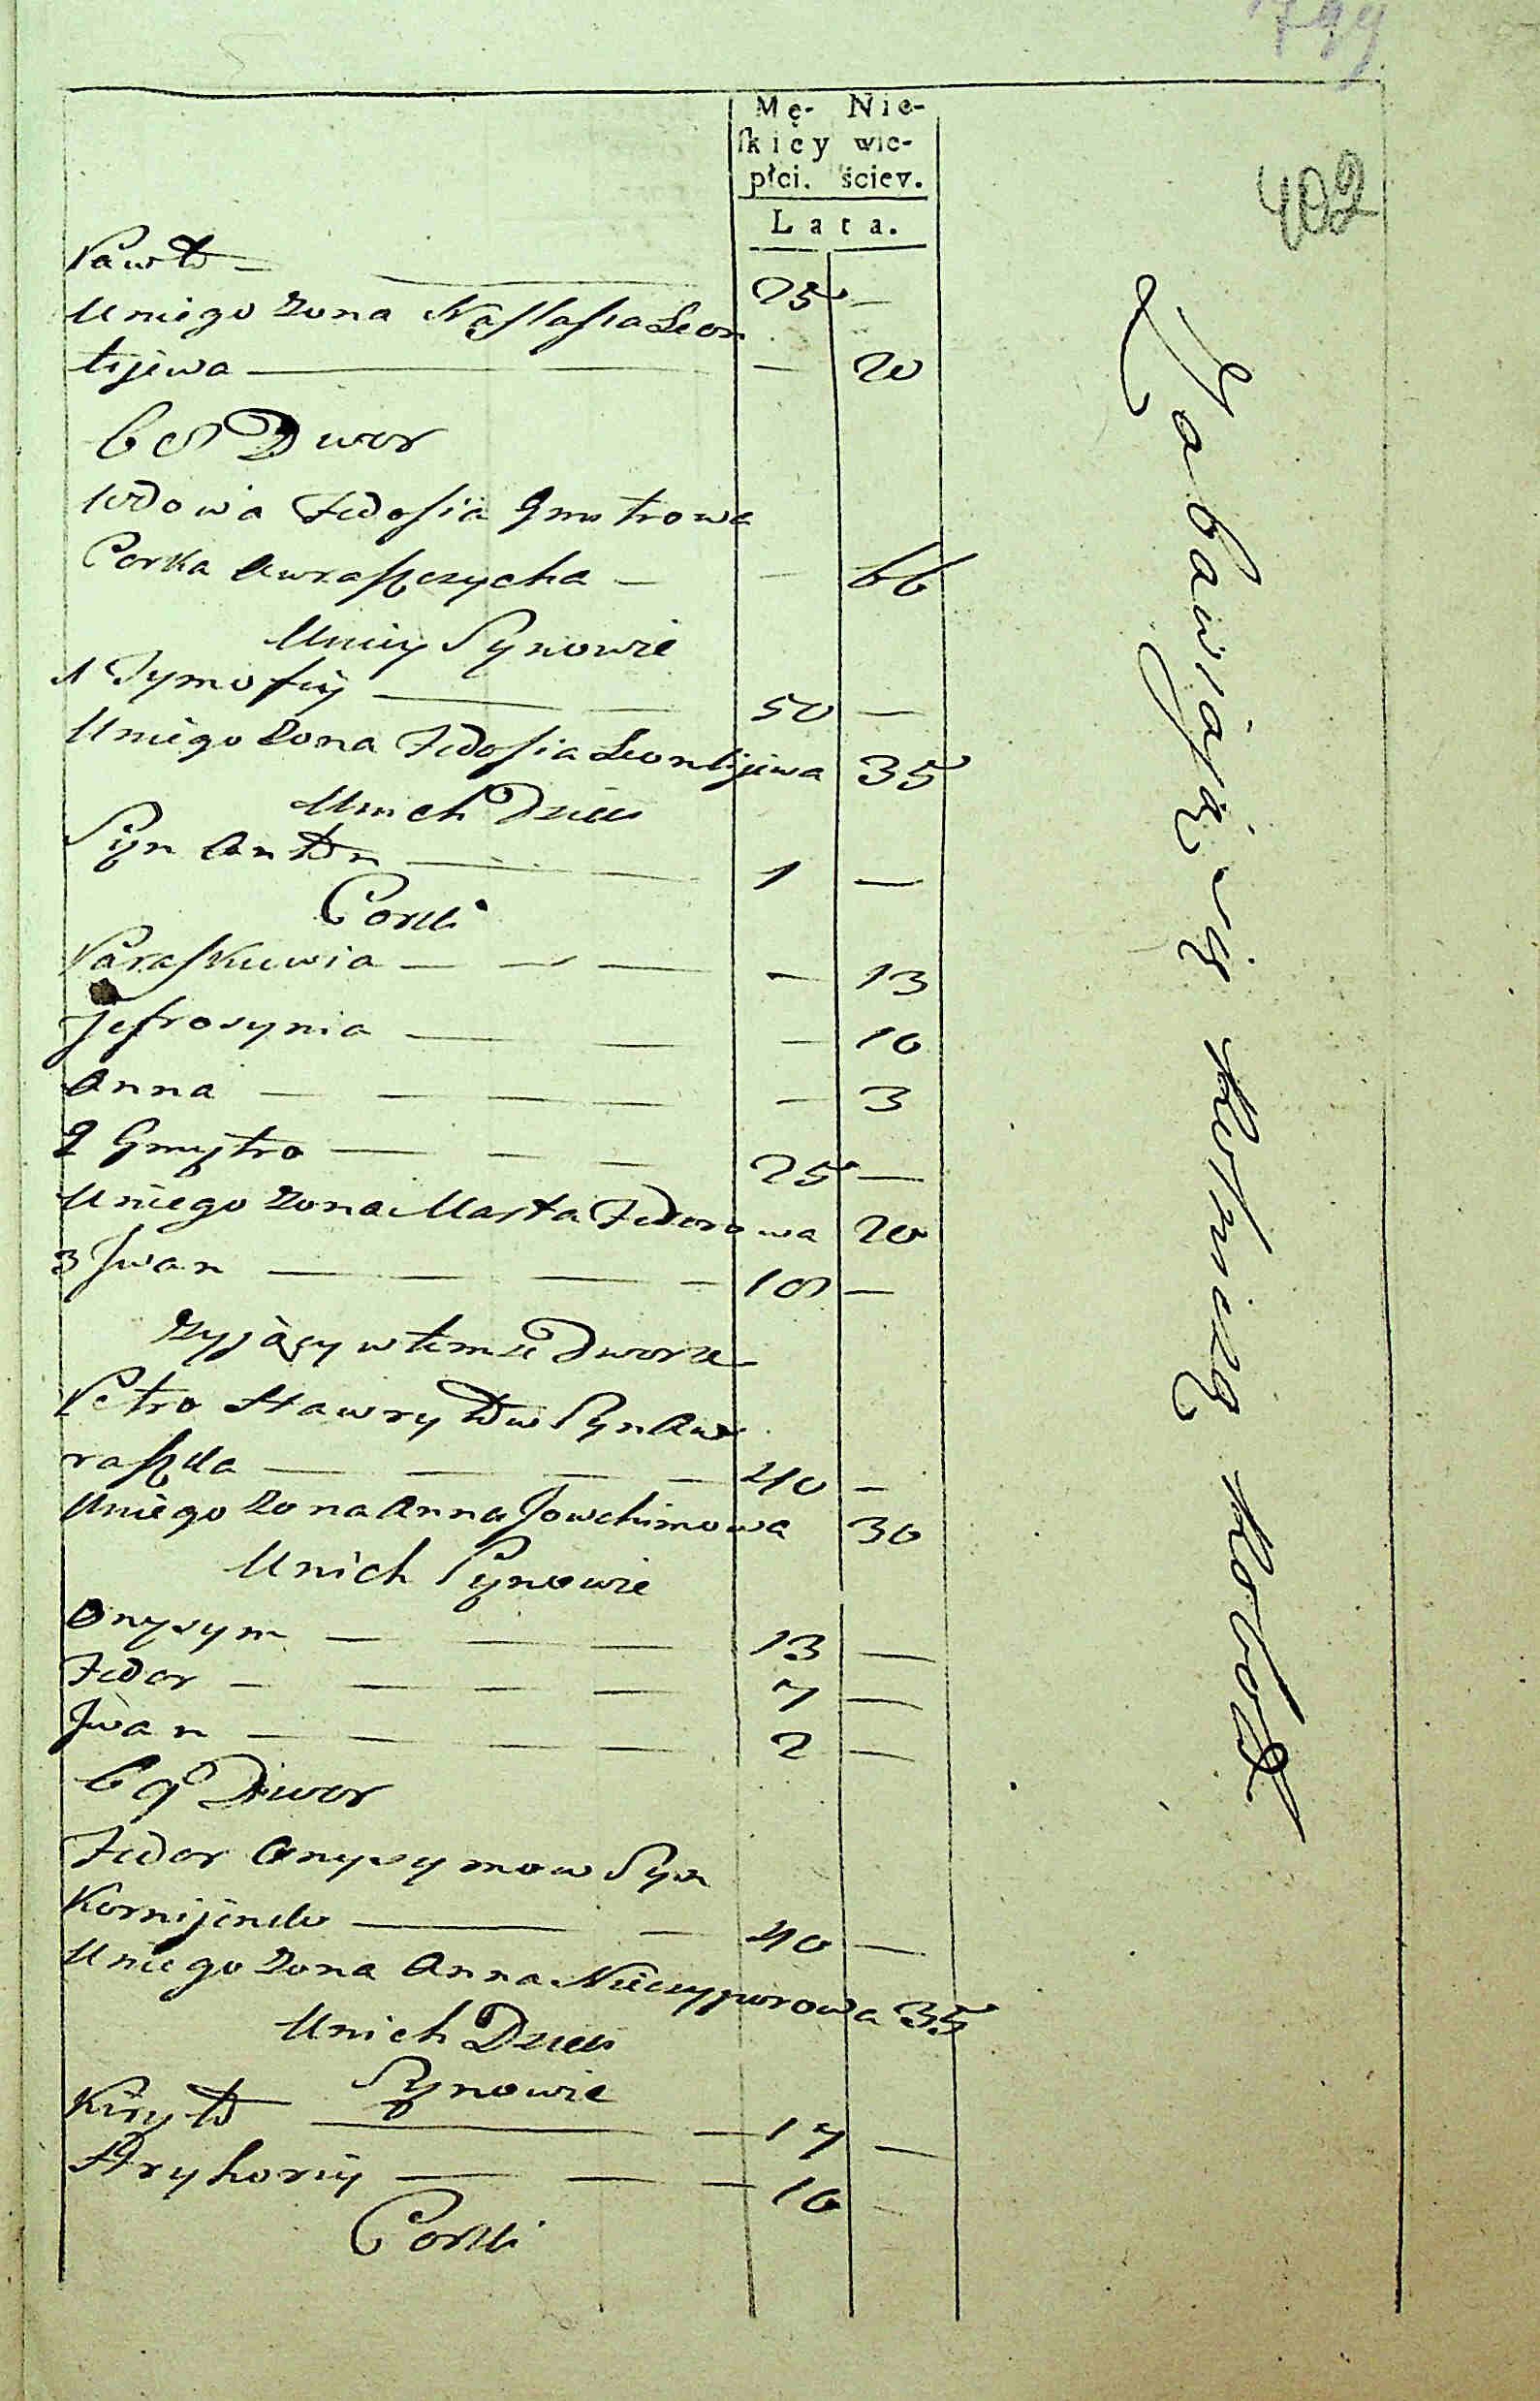 799
402
Mę- Nie-
ſkiey wie-
płci. ściey.
Lata.
Pawło — 25 —
Uniego Zona Nastasia Leon
tijewa — — 20
68 Dwor
Wdowa Fedosia Gmitrowa
Corka Awraszczycha — — 66
Uniey Synowie
1 Tymofiy — 50 —
Uniego Zona Fedosia Leontijewa 35
Unich Dzieci
Syn Anton — 1 —
Corki
Paraskiewia — — 13
Jefrosynia — — 10
Anna — — 3
2 Gmytro — 25 —
Uniego Zona Marta Fedorowa 20
3 Jwan — 18 —
Zyjący w temze Dworze
Petro Hawryłow Syn Aw
raszka — 40 —
Uniego Zona Anna Jowchimowa 30
Unich Synowie
Onysym — 13 —
Fedor — 7 —
Jwan — 2 —
69 Dwor
Fedor Onysymow Syn
Kornijenko — 40 —
Uniego Zona Anna Nieczyporowa 35
Unich Dzieci
Synowie
Kiryło — 17 —
Hryhoriy — 10 —
Corki
Zabawiają się Rolniczą Robotą